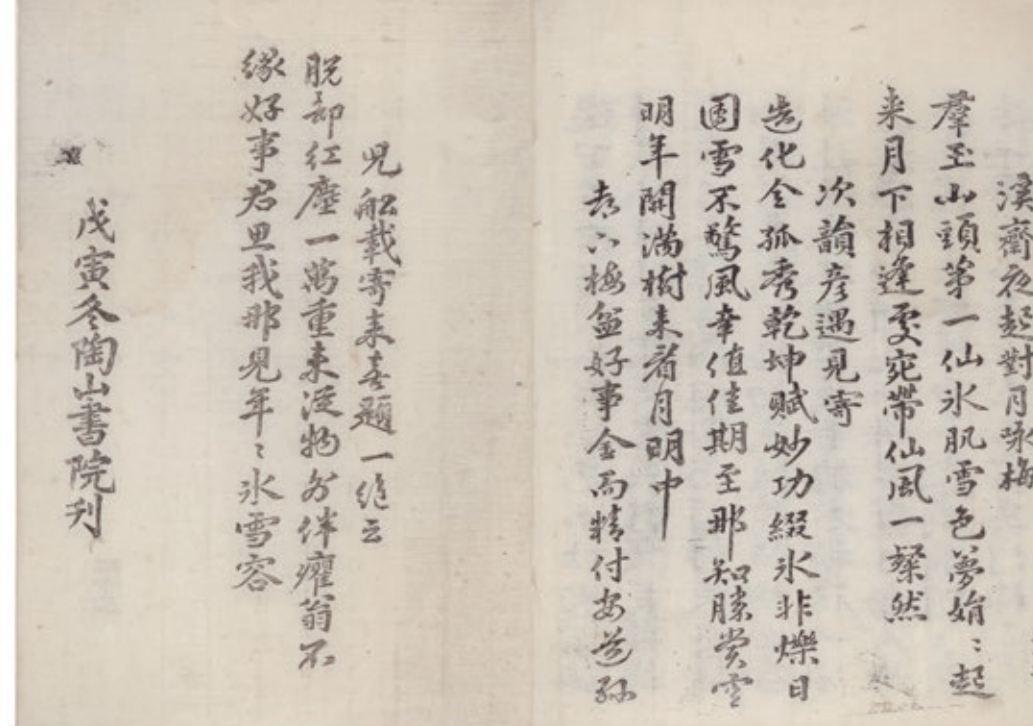 溪齋夜起對月咏梅
羣玉山頭第一仙氷肌雪色夢娟〻起
来月下相逢處宛帶仙風一粲然
次韻彦遇見寄
造化令孤秀乾坤賦妙功綴氷非爍日
團雪不驚風幸值佳期至那知勝賞空
明年開滿樹来看月明中
盆梅好事金而精付安道孫
兒船載寄来喜題一絶云
脱却紅塵一萬重来從物外伴癯翁不
緣好事君思我那見年〻氷雪容
戊寅冬陶山書院刊